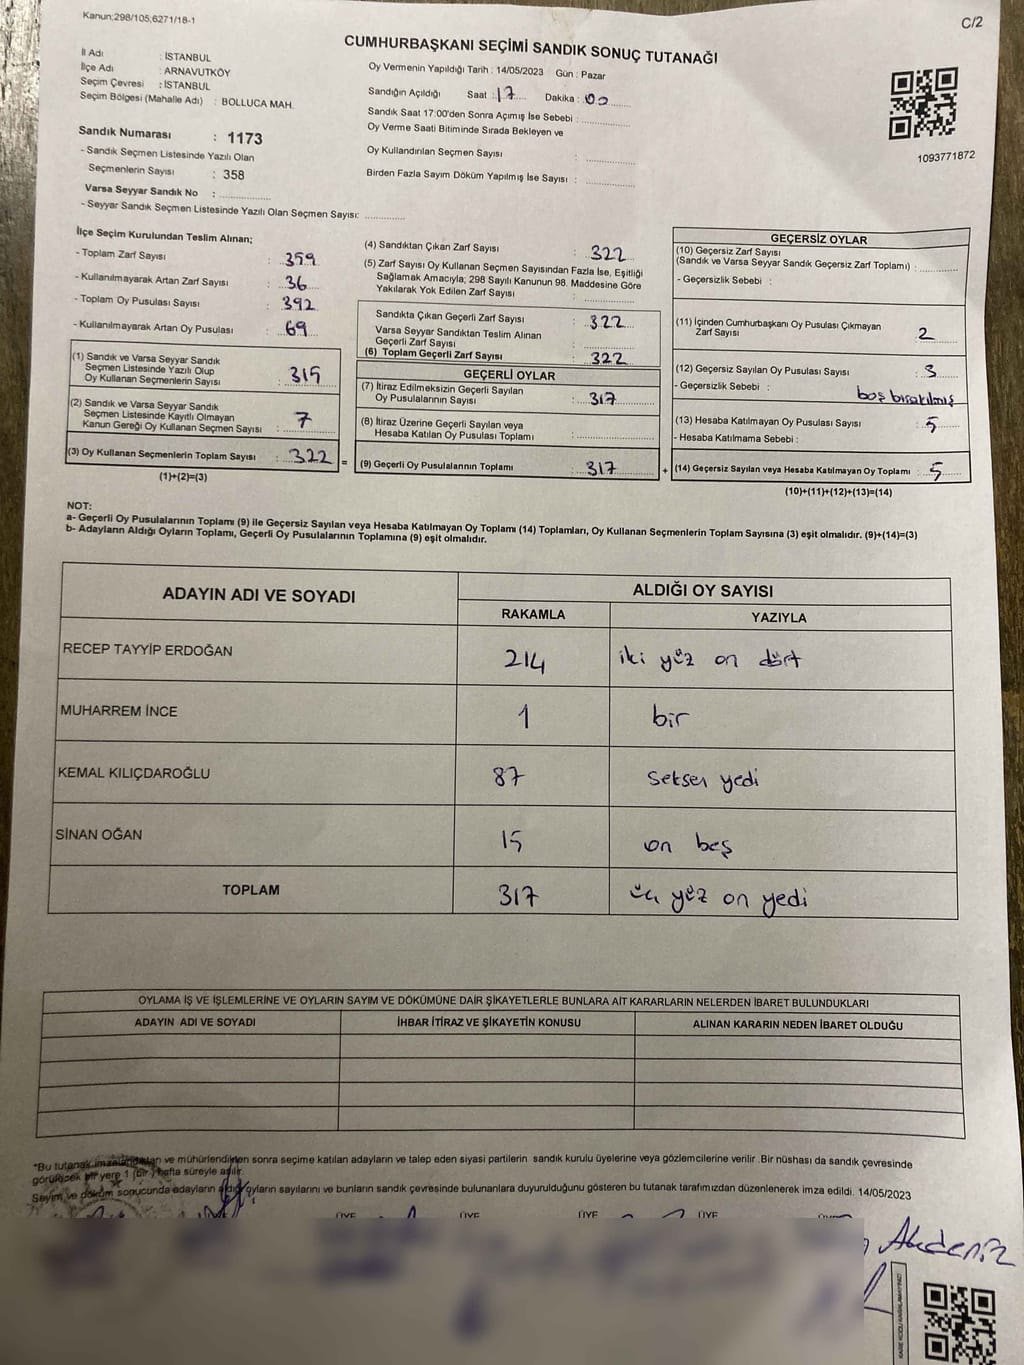 Kanun;298/105;6271/18-1
C/2
CUMHURBAŞKANI SEÇİMİ SANDIK SONUÇ TUTANAĞI
İl Adı : İSTANBUL
İlçe Adı : ARNAVUTKÖY
Seçim Çevresi : İSTANBUL
Seçim Bölgesi (Mahalle Adı) : BOLLUCA MAH.
Sandık Numarası : 1173
- Sandık Seçmen Listesinde Yazılı Olan
Seçmenlerin Sayısı : 358
Varsa Seyyar Sandık No :
- Seyyar Sandık Seçmen Listesinde Yazılı Olan Seçmen Sayısı:
Oy Vermenin Yapıldığı Tarih : 14/05/2023 Gün : Pazar
Sandığın Açıldığı Saat : 17 Dakika : 00
Sandık Saat 17:00'den Sonra Açımış İse Sebebi :
Oy Verme Saati Bitiminde Sırada Bekleyen ve
Oy Kullandırılan Seçmen Sayısı :
Birden Fazla Sayım Döküm Yapılmış İse Sayısı :
1093771872
İlçe Seçim Kurulundan Teslim Alınan;
- Toplam Zarf Sayısı : 359
- Kullanılmayarak Artan Zarf Sayısı : 36
- Toplam Oy Pusulası Sayısı : 392
- Kullanılmayarak Artan Oy Pusulası : 69
(1) Sandık ve Varsa Seyyar Sandık
Seçmen Listesinde Yazılı Olup
Oy Kullanan Seçmenlerin Sayısı : 315
(2) Sandık ve Varsa Seyyar Sandık
Seçmen Listesinde Kayıtlı Olmayan
Kanun Gereği Oy Kullanan Seçmen Sayısı : 7
(3) Oy Kullanan Seçmenlerin Toplam Sayısı : 322 =
(1)+(2)=(3)
(4) Sandıktan Çıkan Zarf Sayısı : 322
(5) Zarf Sayısı Oy Kullanan Seçmen Sayısından Fazla İse, Eşitliği
Sağlamak Amacıyla; 298 Sayılı Kanunun 98. Maddesine Göre
Yakılarak Yok Edilen Zarf Sayısı :
Sandıkta Çıkan Geçerli Zarf Sayısı : 322
Varsa Seyyar Sandıktan Teslim Alınan
Geçerli Zarf Sayısı :
(6) Toplam Geçerli Zarf Sayısı : 322
GEÇERLİ OYLAR
(7) İtiraz Edilmeksizin Geçerli Sayılan
Oy Pusulalarının Sayısı : 317
(8) İtiraz Üzerine Geçerli Sayılan veya
Hesaba Katılan Oy Pusulası Toplamı :
(9) Geçerli Oy Pusulalarının Toplamı : 317 +
GEÇERSİZ OYLAR
(10) Geçersiz Zarf Sayısı
(Sandık ve Varsa Seyyar Sandık Geçersiz Zarf Toplamı) :
- Geçersizlik Sebebi :
(11) İçinden Cumhurbaşkanı Oy Pusulası Çıkmayan
Zarf Sayısı : 2
(12) Geçersiz Sayılan Oy Pusulası Sayısı : 3
- Geçersizlik Sebebi : boş bırakılmış
(13) Hesaba Katılmayan Oy Pusulası Sayısı : 5
- Hesaba Katılmama Sebebi :
(14) Geçersiz Sayılan veya Hesaba Katılmayan Oy Toplamı : 5
(10)+(11)+(12)+(13)=(14)
NOT:
a- Geçerli Oy Pusulalarının Toplamı (9) ile Geçersiz Sayılan veya Hesaba Katılmayan Oy Toplamı (14) Toplamları, Oy Kullanan Seçmenlerin Toplam Sayısına (3) eşit olmalıdır. (9)+(14)=(3)
b- Adayların Aldığı Oyların Toplamı, Geçerli Oy Pusulalarının Toplamına (9) eşit olmalıdır.
ADAYIN ADI VE SOYADI
ALDIĞI OY SAYISI
RAKAMLA YAZIYLA
RECEP TAYYİP ERDOĞAN 214 iki yüz on dört
MUHARREM İNCE 1 bir
KEMAL KILIÇDAROĞLU 87 Seksen yedi
SİNAN OĞAN 15 on beş
TOPLAM 317 üç yüz on yedi
OYLAMA İŞ VE İŞLEMLERİNE VE OYLARIN SAYIM VE DÖKÜMÜNE DAİR ŞİKAYETLERLE BUNLARA AİT KARARLARIN NELERDEN İBARET BULUNDUKLARI
ADAYIN ADI VE SOYADI İHBAR İTİRAZ VE ŞİKAYETİN KONUSU ALINAN KARARIN NEDEN İBARET OLDUĞU
*Bu tutanak imzalandıktan ve mühürlendikten sonra seçime katılan adayların ve talep eden siyasi partilerin sandık kurulu üyelerine veya gözlemcilerine verilir. Bir nüshası da sandık çevresinde
görülecek bir yere 1 (bir) hafta süreyle asılır.
Sayım ve döküm sonucunda adayların aldığı oyların sayılarını ve bunların sandık çevresinde bulunanlara duyurulduğunu gösteren bu tutanak tarafımızdan düzenlenerek imza edildi. 14/05/2023
ÜYE ÜYE ÜYE ÜYE
Akdeniz
KARE KODU KARALAMAYINIZ!